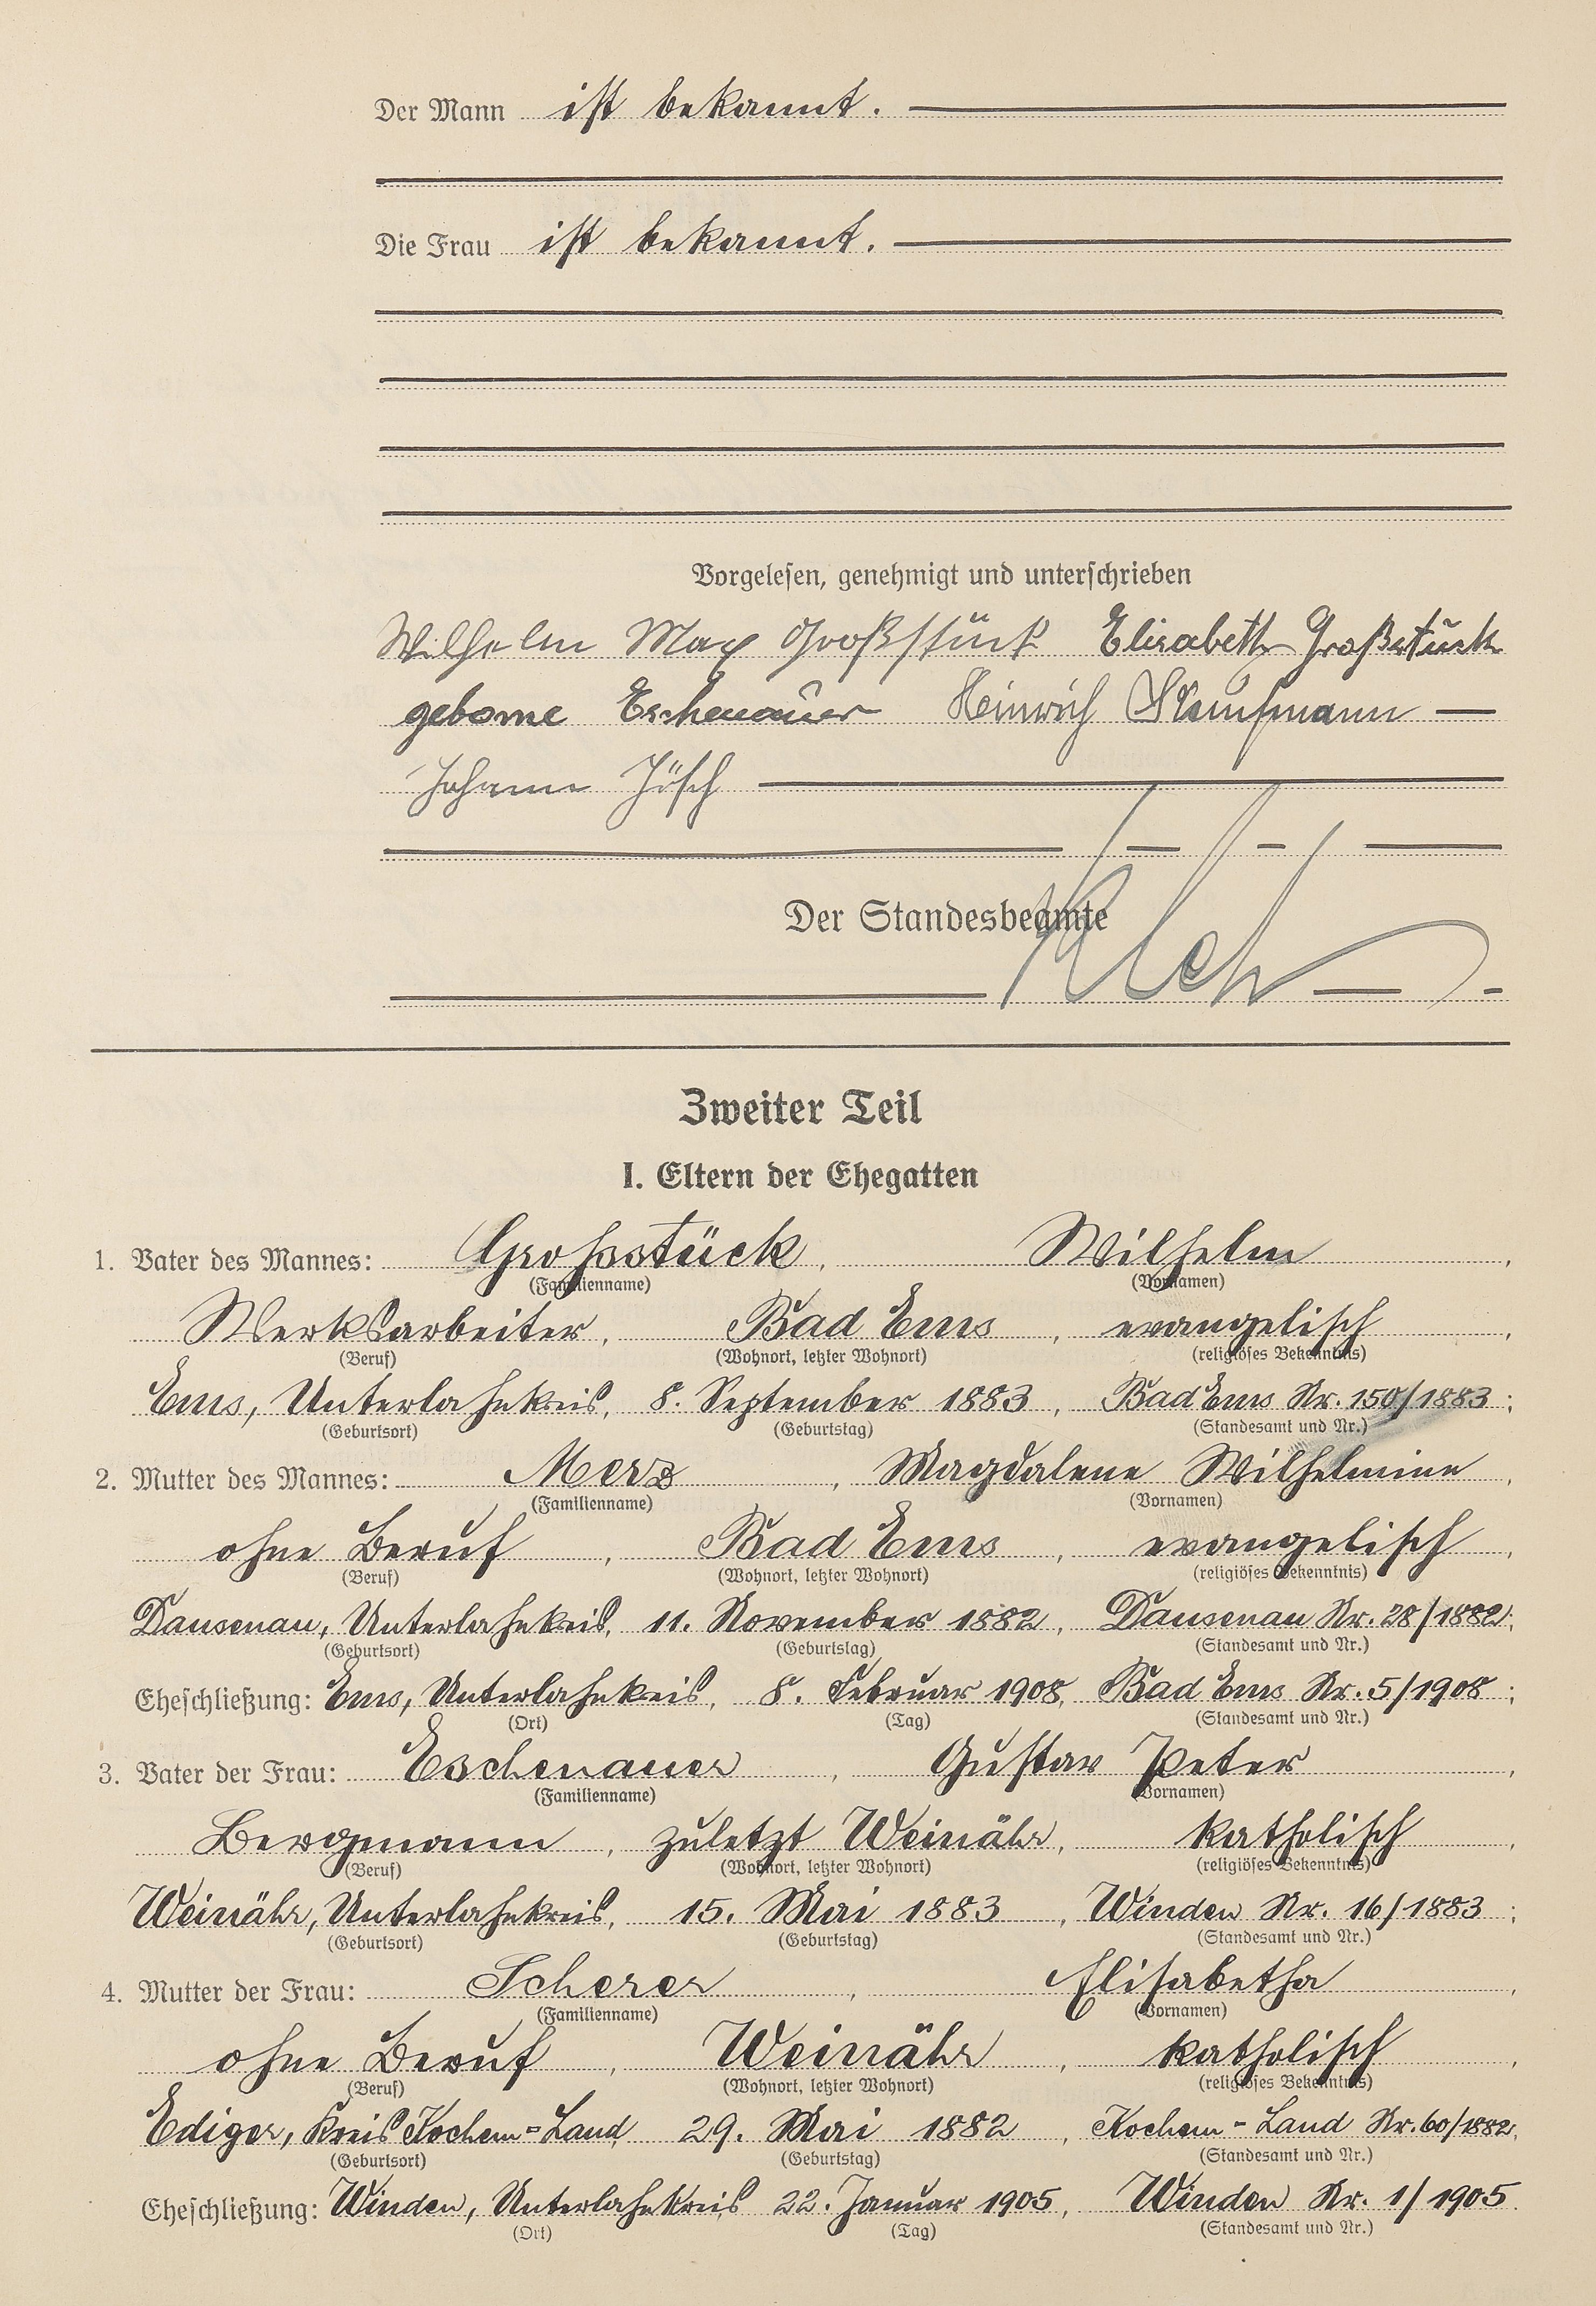 Der Mann ist bekannt.
Die Frau ist bekannt.
Vorgelesen, genehmigt und unterschrieben
Wilhelm Max Großstück Elisabeth Großstück
geborne Eschenauer Heinrich
Johann Jösch
Der Standesbeamte
Zweiter Teil
I. Eltern der Ehegatten
1. Vater des Mannes: Großstück, Wilhelm,
(Familienname) (Vornamen)
Werksarbeiter, Bad Ems, evangelisch,
(Beruf) (Wohnort, letzter Wohnort) (religiöses Bekenntnis)
Ems, Unterlahnkreis, 8. September 1883, Bad Ems Nr. 150/1883;
(Geburtsort) (Geburtstag) (Standesamt und Nr.)
2. Mutter des Mannes: Merz, Magdalene Wilhelmine,
(Familienname) (Vornamen)
ohne Beruf, Bad Ems, evangelisch,
(Beruf) (Wohnort, letzter Wohnort) (religiöses Bekenntnis)
Dausenau, Unterlahnkreis, 11. November 1882, Dausenau Nr. 28/1882;
(Geburtsort) (Geburtstag) (Standesamt und Nr.)
Eheschließung: Ems, Unterlahnkreis, 8. Februar 1908, Bad Ems Nr. 5/1908;
(Ort) (Tag) (Standesamt und Nr.)
3. Vater der Frau: Eschenauer, Gustav Peter,
(Familienname) (Vornamen)
Bergmann, zuletzt Weinähr, katholisch,
(Beruf) (Wohnort, letzter Wohnort) (religiöses Bekenntnis)
Weinähr, Unterlahnkreis, 15. Mai 1883, Winden Nr. 16/1883;
(Geburtsort) (Geburtstag) (Standesamt und Nr.)
4. Mutter der Frau: Scherer, Elisabetha,
(Familienname) (Vornamen)
ohne Beruf, Weinähr, katholisch,
(Beruf) (Wohnort, letzter Wohnort) (religiöses Bekenntnis)
Ediger, Kreis Kochem=Land, 29. Mai 1882, Kochem-Land Nr. 60/1882,
(Geburtsort) (Geburtstag) (Standesamt und Nr.)
Eheschließung: Winden, Unterlahnkreis, 22. Januar 1905, Winden Nr. 1/1905.
(Ort) (Tag) (Standesamt und Nr.)